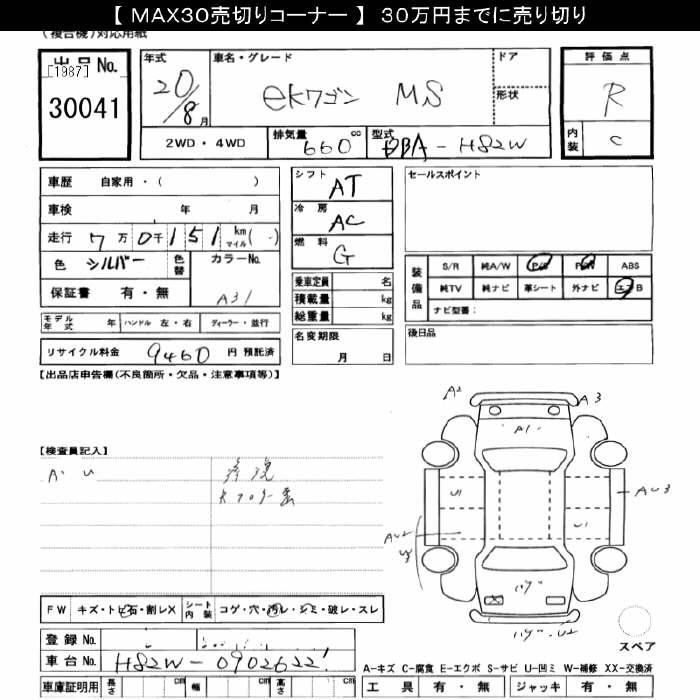 【 MAX30売切りコーナー 】 30万円までに売り切り
(複合機)対応用紙
出品No.
[1987]
30041
年式 20/8月
車名・グレード ekワゴン MS
ドア
形状
評価点 R
内装 C
2WD・4WD
排気量 660 cc
型式 DBA-H82W
車歴 自家用・( )
車検 年 月
走行 7万0千151 km マイル( )
色 シルバー 色替
カラーNo. A31
保証書 有・無
モデル年式 年 ハンドル 左・右 ディーラー・並行
リサイクル料金 9460 円 預託済
シフト AT
冷房 AC
燃料 G
乗車定員 名
積載量 kg
総重量 kg
名変期限 月 日
セールスポイント
装備品
S/R 純A/W P/S P/W ABS
純TV 純ナビ 革シート 外ナビ エアB
ナビ型番:
後日品
【出品店申告欄(不良箇所・欠品・注意事項等)】
【検査員記入】
A・U
A2 A3
A1
U1
AU3
AU2
U1
FW キズ・トビ石・割レX シート内装 コゲ・穴・汚レ・シミ・破レ・スレ
登録No.
車台No. H82W-0902622
車庫証明用 長さ cm 幅 cm 高さ cm
スペア
A-キズ C-腐食 E-エクボ S-サビ U-凹ミ W-補修 XX-交換済
工具 有・無 ジャッキ 有・無